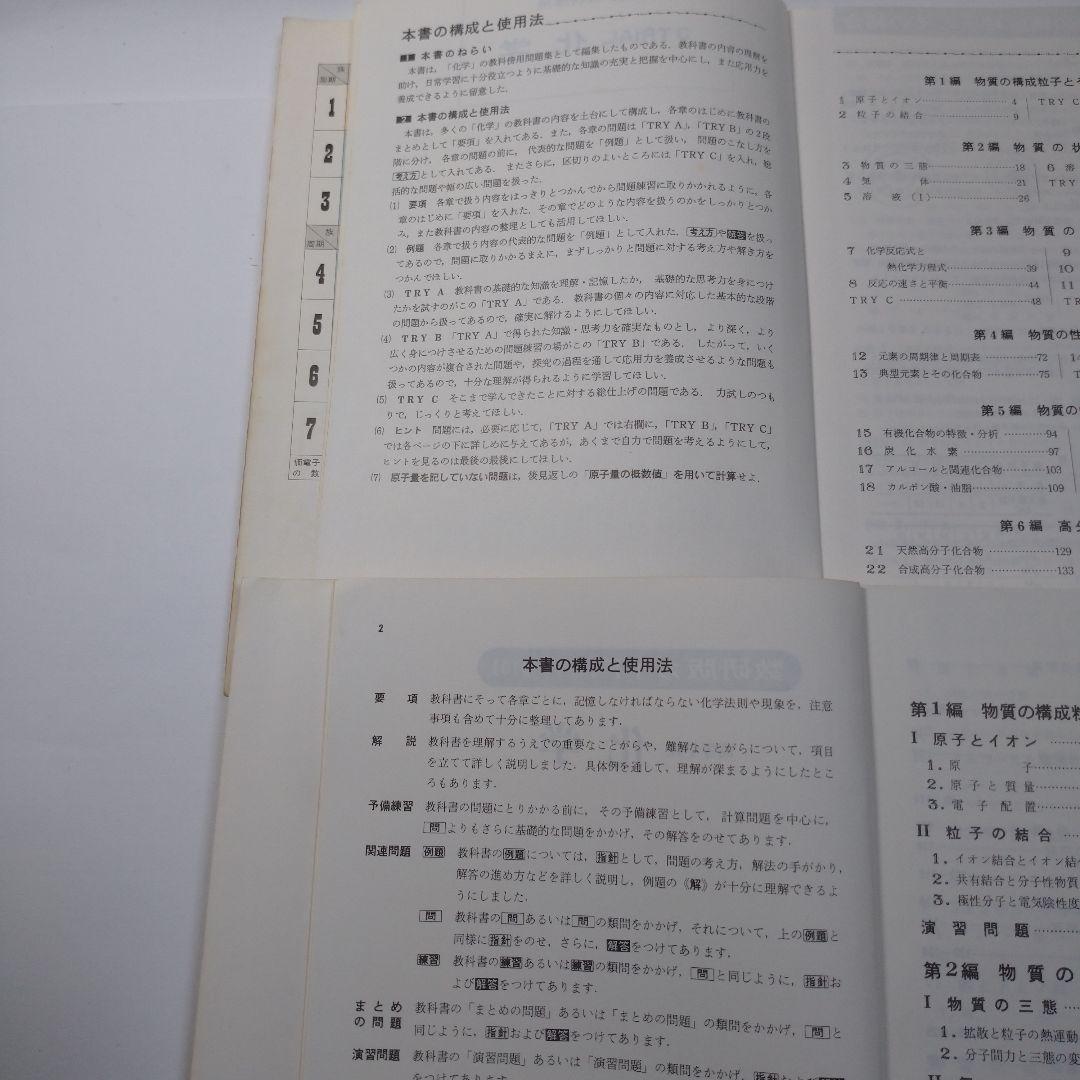 本書の構成と使用法
■1■ 本書のねらい
本書は,「化学」の教科傍用問題集として編集したものである.教科書の内容の理解を
助け,日常学習に十分役立つように基礎的な知識の充実と把握を中心にし,また応用力を
養成できるように留意した.
■2■ 本書の構成と使用法
本書は,多くの「化学」の教科書の内容を土台にして構成し,各章のはじめに教科書の
まとめとして「要項」を入れてある.また,各章の問題は「TRY A」,「TRY B」の2段
階に分け,各章の問題の前に,代表的な問題を「例題」として扱い,問題のこなし方を
考え方として入れてある.またさらに,区切りのよいところには「TRY C」を入れ,総
括的な問題や幅の広い問題を扱った.
(1) 要項 各章で扱う内容をはっきりとつかんでから問題練習に取りかかれるように,各
章のはじめに「要項」を入れた.その章でどのような内容を扱うのかをしっかりとつか
み,また教科書の内容の整理としても活用してほしい.
(2) 例題 各章で扱う内容の代表的な問題を「例題」として入れた.考え方や解答を扱っ
てあるので,問題に取りかかるまえに,まずしっかりと問題に対する考え方や解き方を
つかんでほしい.
(3) TRY A 教科書の基礎的な知識を理解・記憶したか,基礎的な思考力を身につけ
たかを試すのがこの「TRY A」である.教科書の個々の内容に対応した基本的な段階
の問題から扱ってあるので,確実に解けるようにしてほしい.
(4) TRY B 「TRY A」で得られた知識・思考力を確実なものとし,より深く,より
広く身につけさせるための問題練習の場がこの「TRY B」である.したがって,いく
つかの内容が複合された問題や,探究の過程を通して応用力を養成させるような問題も
扱ってあるので,十分な理解が得られるように学習してほしい.
(5) TRY C そこまで学んできたことに対する総仕上げの問題である.力試しのつも
りで,じっくりと考えてほしい.
(6) ヒント 問題には,必要に応じて,「TRY A」では右欄に,「TRY B」,「TRY C」
では各ページの下に詳しめに与えてあるが,あくまで自力で問題を考えるようにして,
ヒントを見るのは最後の最後にしてほしい.
(7) 原子量を記していない問題は,後見返しの「原子量の概数値」を用いて計算せよ.
族
周期
1
2
3
族
周期
4
5
6
7
価電子
の数
第1編 物質の構成粒子とそ
1 原子とイオン……4 TRY C
2 粒子の結合……9
第2編 物質の状
3 物質の三態……18 6 溶
4 気体……21 TRY
5 溶液(1)……26
第3編 物質の
7 化学反応式と 9
熱化学方程式……39 10
8 反応の速さと平衡……44 11
TRY C……48 TR
第4編 物質の性
12 元素の周期律と周期表……72 14
13 典型元素とその化合物……75 T
第5編 物質の
15 有機化合物の特徴・分析……94
16 炭化水素……97
17 アルコールと関連化合物……103
18 カルボン酸・油脂……109
第6編 高分
21 天然高分子化合物……129
22 合成高分子化合物……133
2
本書の構成と使用法
要項 教科書にそって各章ごとに,記憶しなければならない化学法則や現象を,注意
事項も含めて十分に整理してあります.
解説 教科書を理解するうえでの重要なことがらや,難解なことがらについて,項目
を立てて詳しく説明しました.具体例を通して,理解が深まるようにしたとこ
ろもあります.
予備練習 教科書の問題にとりかかる前に,その予備練習として,計算問題を中心に,
問よりもさらに基礎的な問題をかかげ,その解答をのせてあります.
関連問題 例題 教科書の例題については,指針として,問題の考え方,解法の手がかり,
解答の進め方などを詳しく説明し,例題の《解》が十分に理解できるよ
うにしました.
問 教科書の問あるいは問の類問をかかげ,それについて,上の例題と
同様に指針をのせ,さらに,解答をつけてあります.
練習 教科書の練習あるいは練習の類問をかかげ,問と同じように,指針お
よび解答をつけてあります.
まとめ 教科書の「まとめの問題」あるいは「まとめの問題」の類問をかかげ,問と
の問題 同じように,指針および解答をつけてあります.
演習問題 教科書の「演習問題」あるいは「演習問題」の類問をかかげ,指針および
をつけてあります.
第1編 物質の構成粒
I 原子とイオン……
1.原子……
2.原子と質量……
3.電子配置……
II 粒子の結合……
1.イオン結合とイオン結
2.共有結合と分子性物質
3.極性分子と電気陰性度
演習問題……
第2編 物質の
I 物質の三態……
1.拡散と粒子の熱運動
2.分子間力と三態の変
II